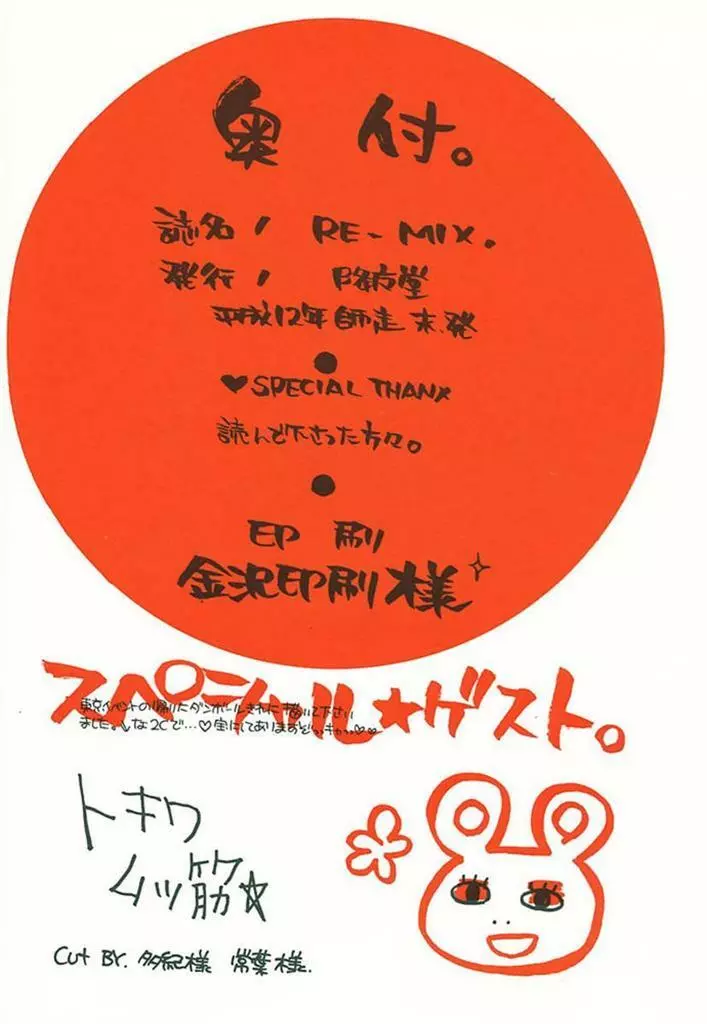 奥付。
誌名/ RE-MIX.
発行/ 陥方堂
平成12年師走末.発
♥SPECIAL THANX
読んで下さった方々。
印刷
金沢印刷様
スペシャル★ゲスト。
東京イベントの帰りにダンボールきれに描いて下さい
ました。しな2Cで…♡宝にしてあります
トキワ
ムツ筋☆
Cut BY. 多紀様 常葉様.